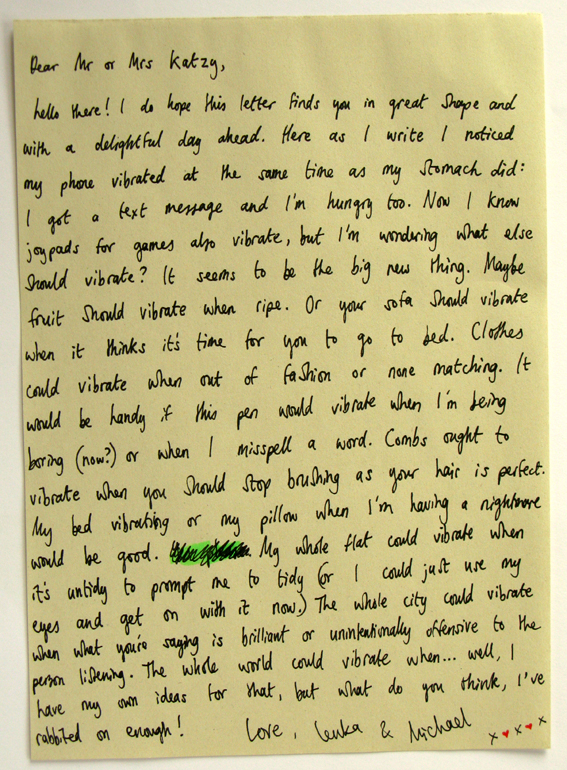 Dear Mr or Mrs Katzy,
hello there! I do hope this letter finds you in great shape and
with a delightful day ahead. Here as I write I noticed
my phone vibrated at the same time as my stomach did:
I got a text message and I'm hungry too. Now I know
joypads for games also vibrate, but I'm wondering what else
should vibrate? It seems to be the big new thing. Maybe
fruit should vibrate when ripe. Or your sofa should vibrate
when it thinks it's time for you to go to bed. Clothes
could vibrate when out of fashion or none matching. It
would be handy if this pen would vibrate when I'm being
boring (now?) or when I misspell a word. Combs ought to
vibrate when you should stop brushing as your hair is perfect.
My bed vibrating or my pillow when I'm having a nightmare
would be good. My whole flat could vibrate when
it's untidy to prompt me to tidy (or I could just use my
eyes and get on with it now.) The whole city could vibrate
when what you're saying is brilliant or unintentionally offensive to the
person listening. The whole world could vibrate when... well, I
have my own ideas for that, but what do you think, I've
rabbited on enough! Love, Lenka & Michael x♥x♥x